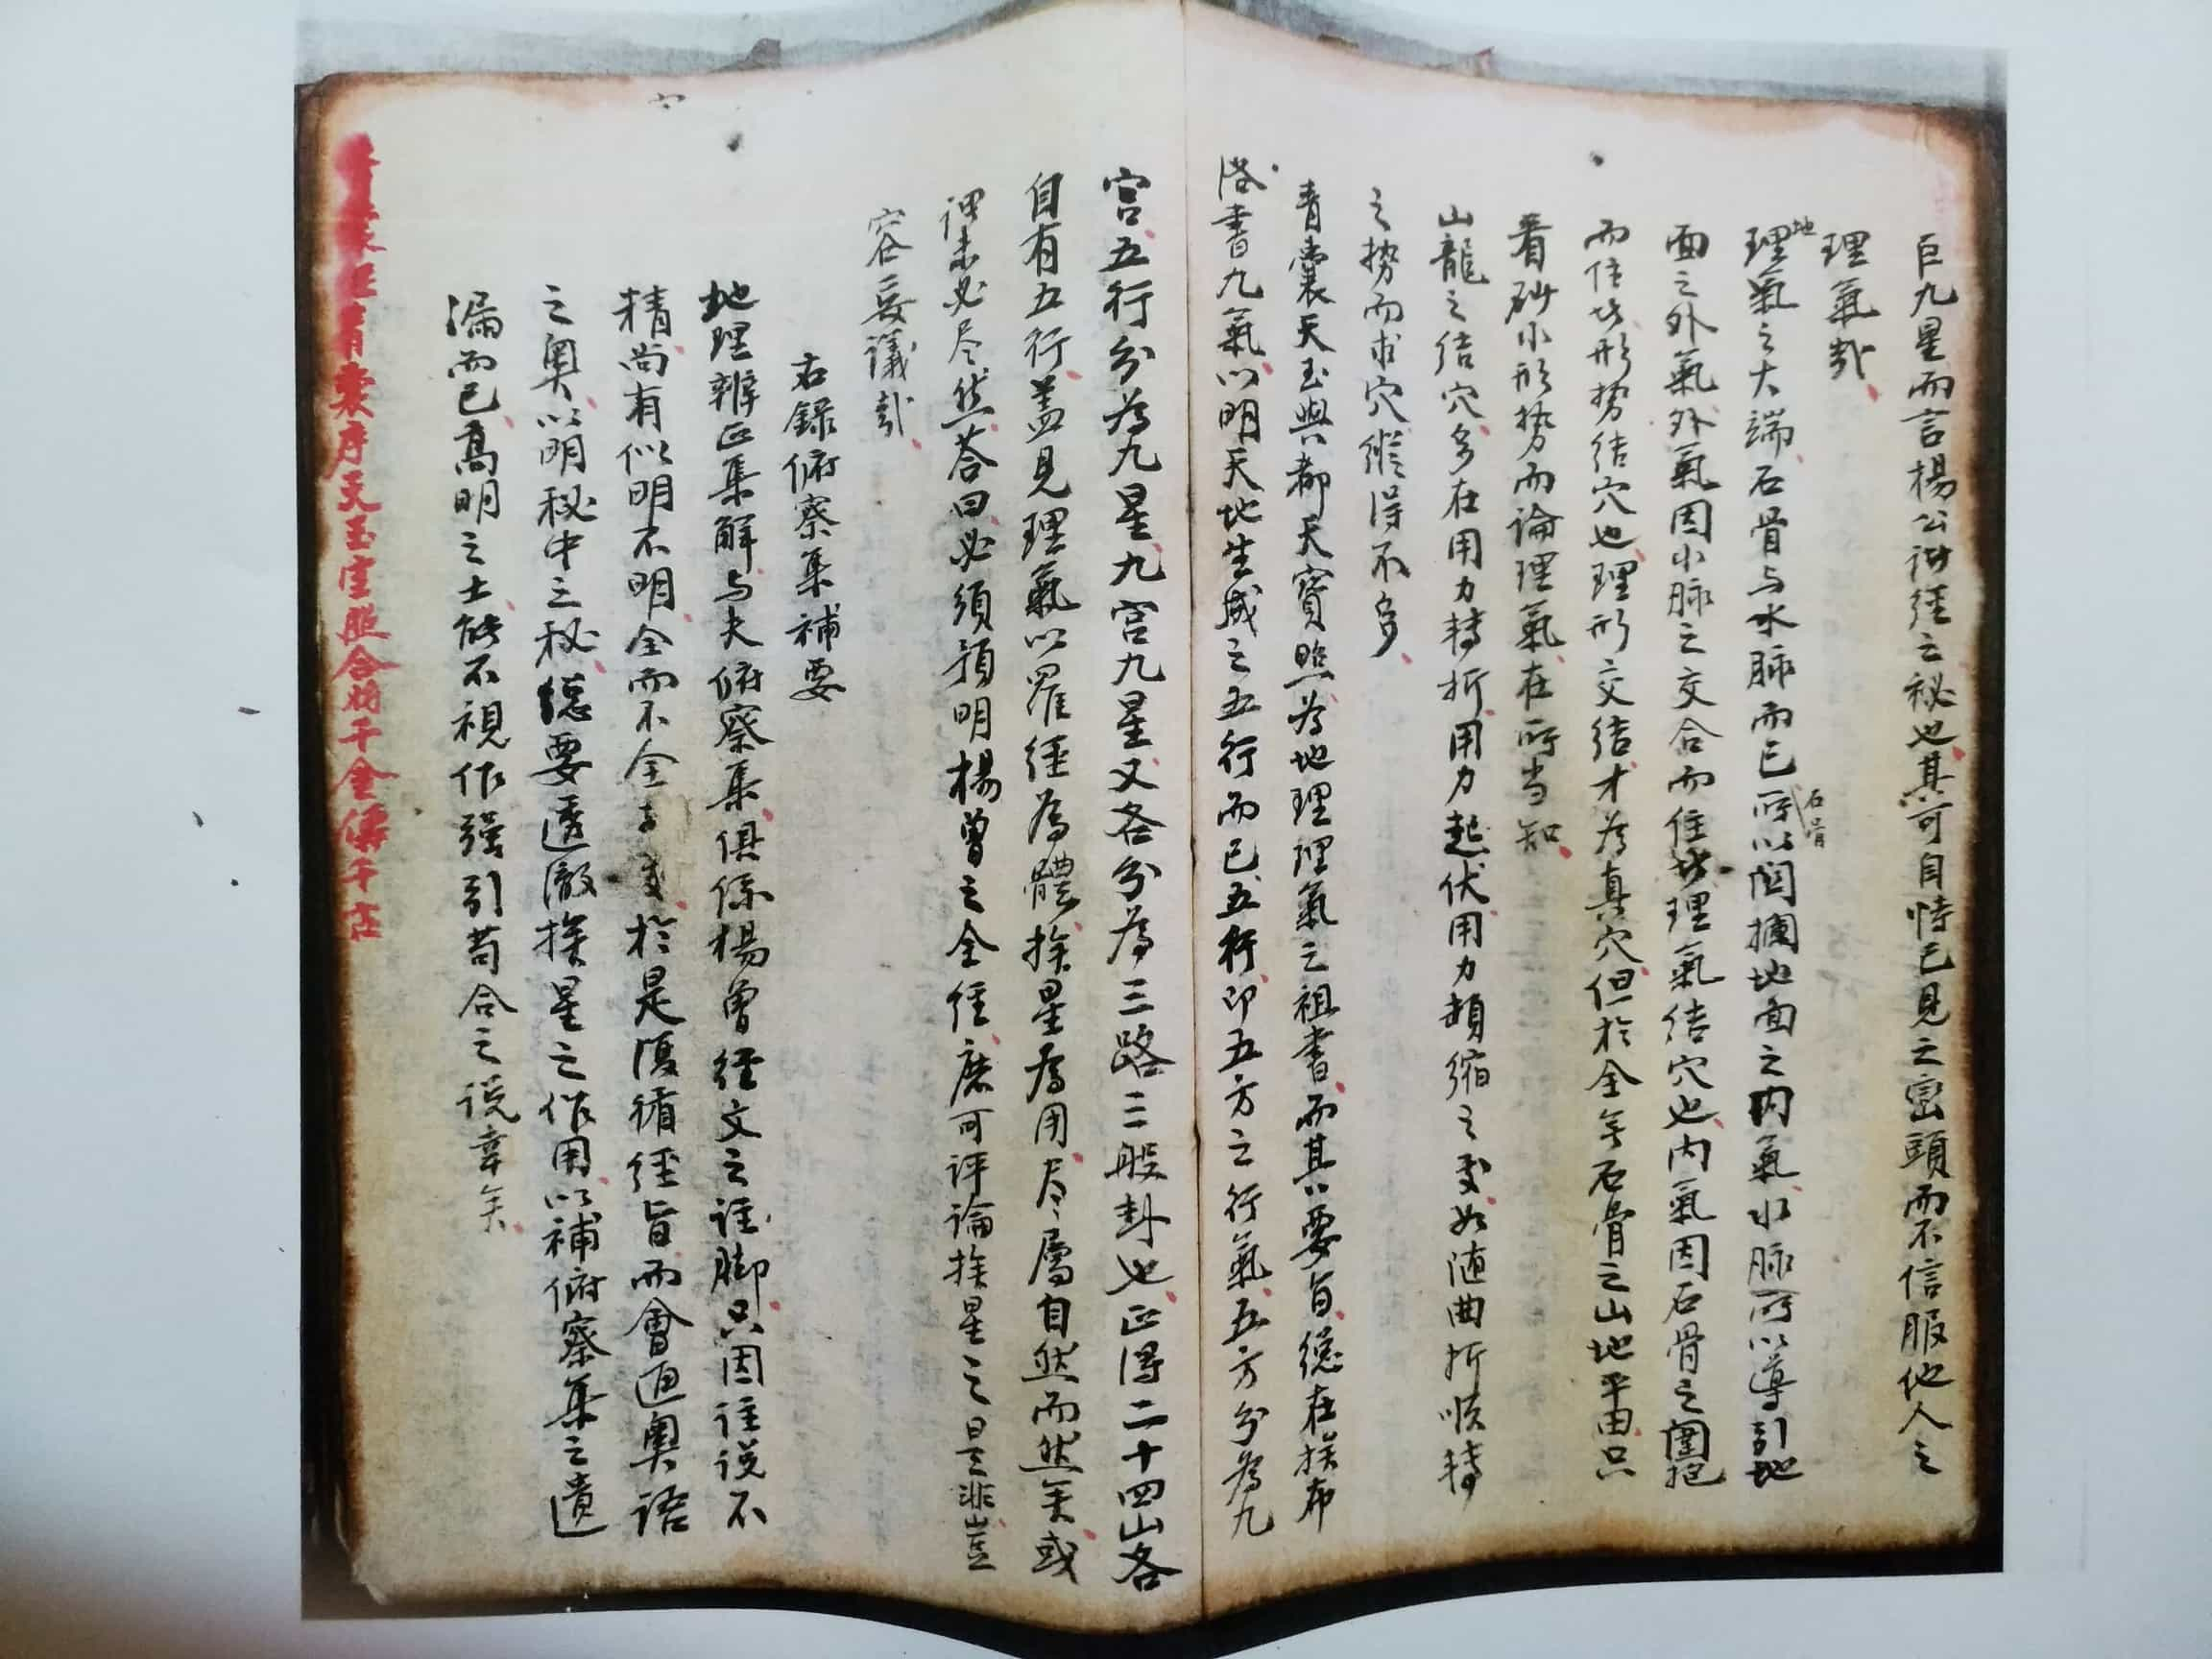 巨九星而言楊公訣經之秘也其可自恃己見之巒頭而不信服他人之
理氣哉
地理氣之大端石骨与水脉而已石骨所以関攔地面之内氣水脉所以導引地
面之外氣外氣因水脉之交合而住故理氣結穴也内氣因石骨之圍抱
而住故形势結穴也理形交結才為真穴但於全無石骨之山地平田只
看砂水形势而論理氣在所当知
山龍之結穴多在用力轉折用力起伏用力頓縮之處如随曲折順轉
之势而求穴縱得不多
青囊天玉與都天寳照為地理理氣之祖書而其要旨總在挨布
洛書九氣以明天地生成之五行而已五行卽五方之行氣五方分為九
宫五行分為九星九宫九星又各分為三路三般卦也正得二十四山各
自有五行蓋見理氣以羅經為體挨星為用尽属自然而然矣或
謂未必尽然答曰必須預明楊曾之全經庶可评論挨星之是非豈
容妄議哉
右録俯察集補要
地理辨正集解与夫俯察集俱係楊曾經文之註脚只因註说不
精尚有似明不明全而不全於是復循經旨而會通奥語
之奥以明秘中之秘總要透澈挨星之作用以補俯察集之遺
漏而已高明之士能不視作强引苟合之说幸矣
青囊經青囊序天玉宝照合 千金傳千古